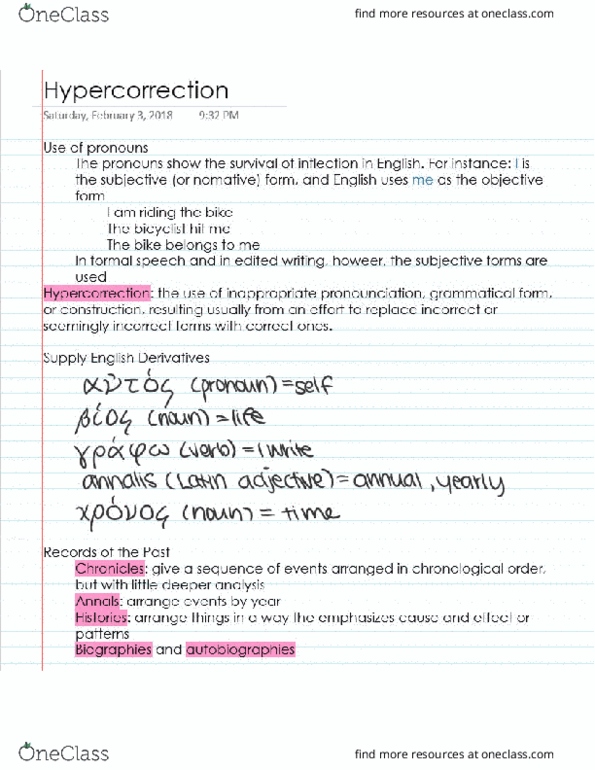 OneClass
find more resources at oneclass.com
Hypercorrection
Saturday, February 3, 2018 9:32 PM
Use of pronouns
The pronouns show the survival of inflection in English. For instance: I is
the subjective (or nomative) form, and English uses me as the objective
form
I am riding the bike
The bicyclist hit me
The bike belongs to me
In formal speech and in edited writing, howeer, the subjective forms are
used
Hypercorrection: the use of inappropriate pronounciation, grammatical form,
or construction, resulting usually from an effort to replace incorrect or
seemingly incorrect forms with correct ones.
Supply English Derivatives
αυτός (pronoun) = self
βίος (noun) = life
γράφω (verb) = I write
annalis (Latin adjective) = annual, yearly
χρόνος (noun) = time
Records of the Past
Chronicles: give a sequence of events arranged in chronological order,
but with little deeper analysis
Annals: arrange events by year
Histories: arrange things in a way the emphasizes cause and effect or
patterns
Biographies and autobiographies
OneClass
find more resources at oneclass.com